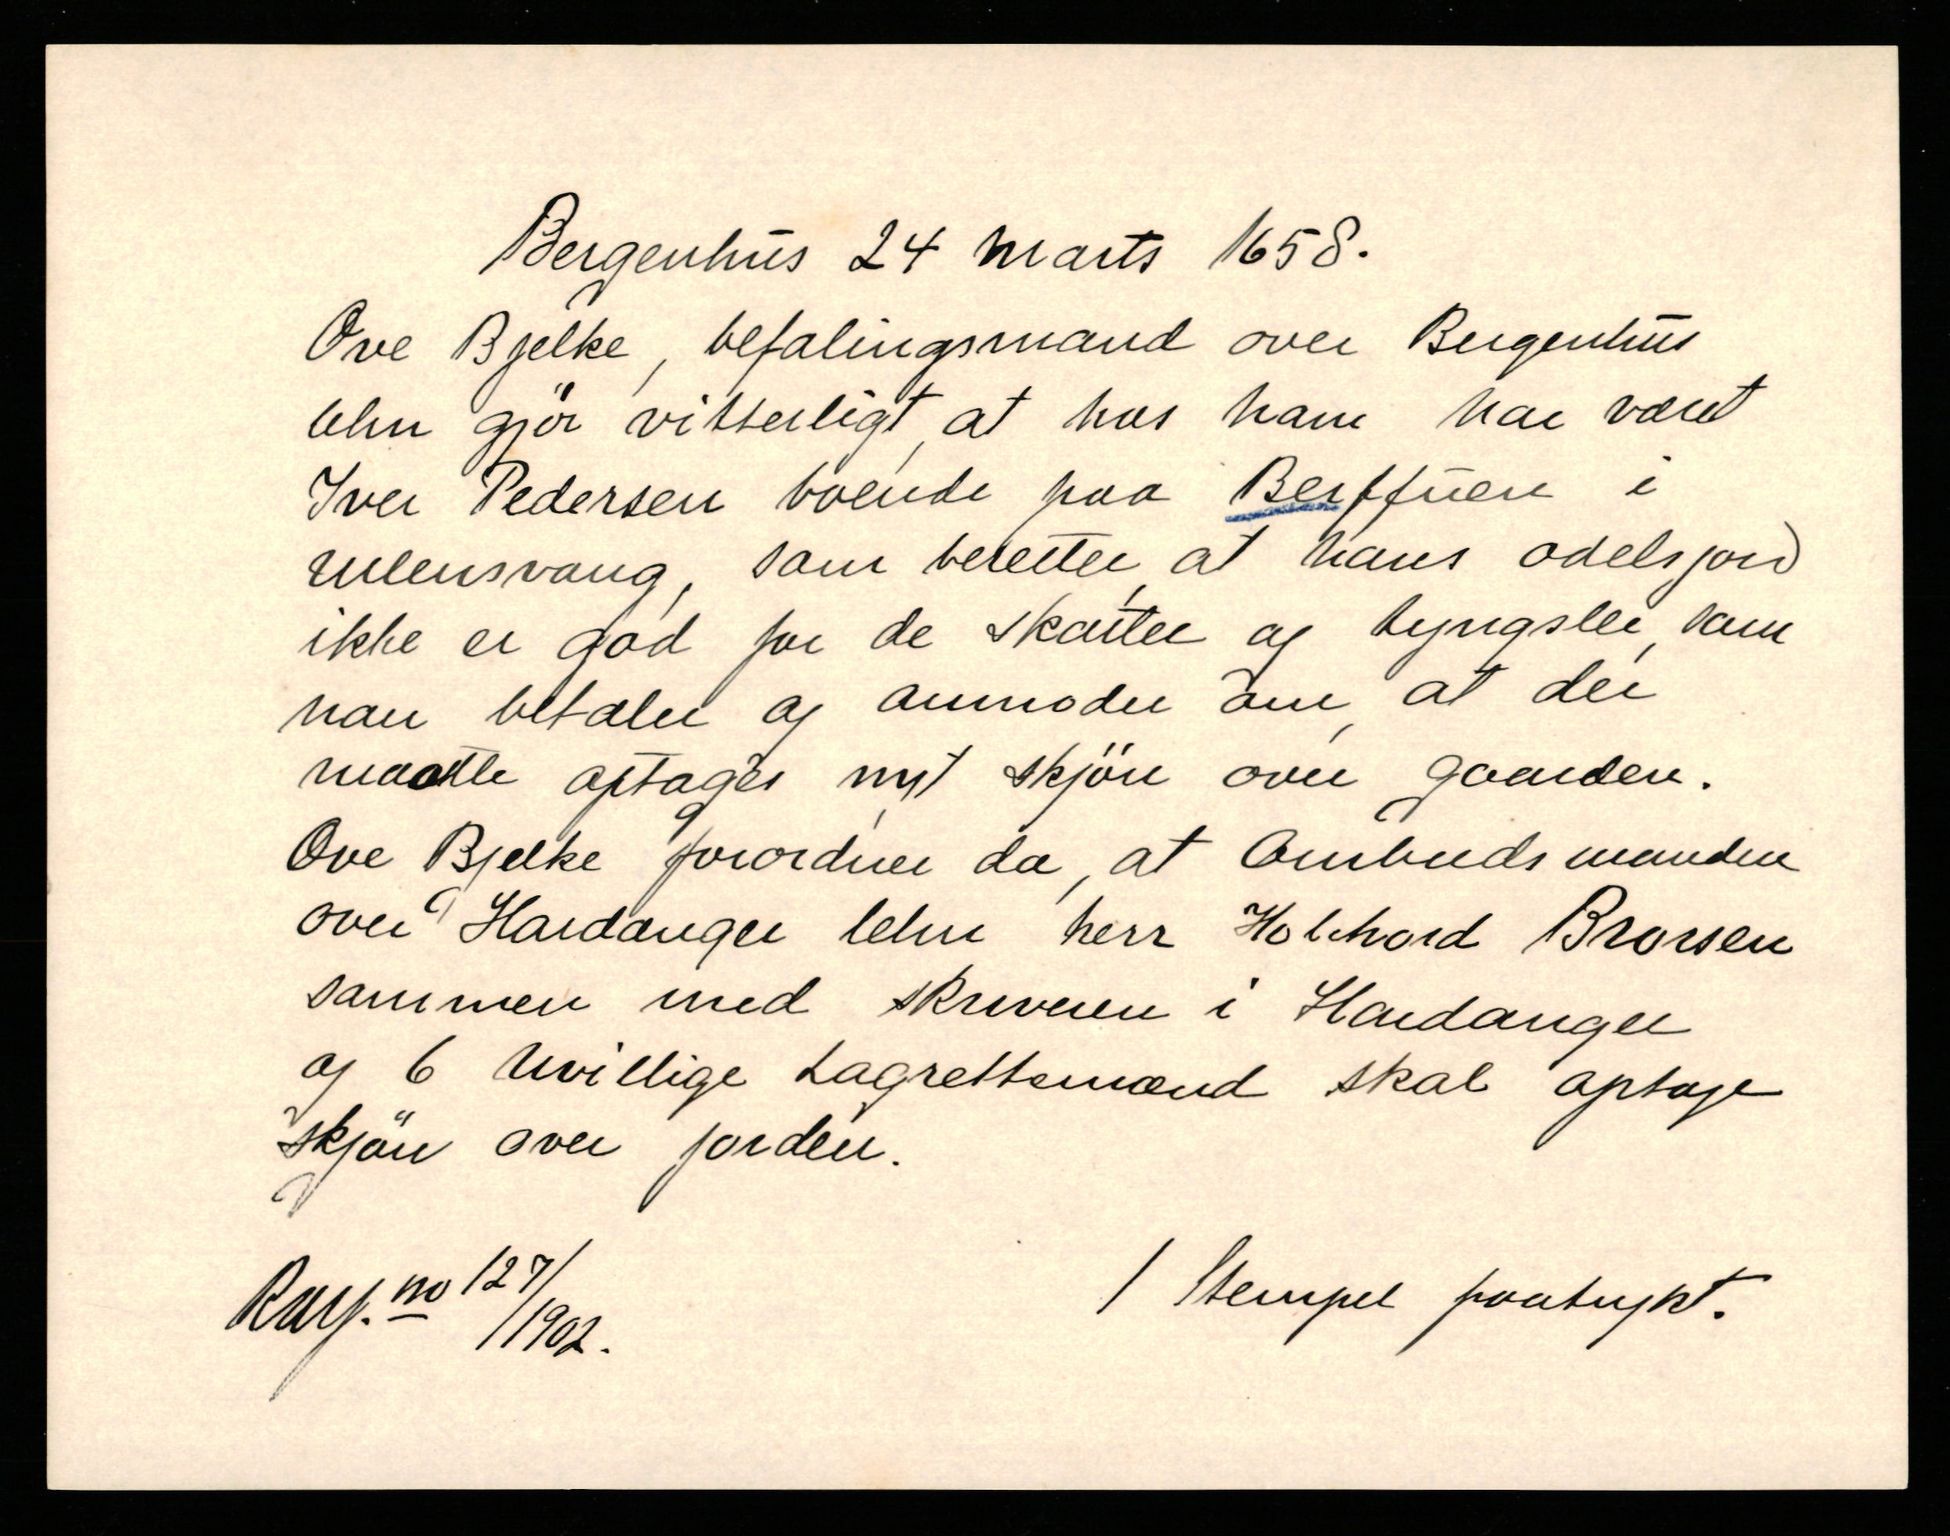 Bergenhus 24 marts 1658.
Ove Bjelke, befalingsmand over Bergenhus
lehn gjör vitterligt, at hos ham har været
Iver Pedersen boende paa Berffuen i
Ulensvang, som beretter, at hans odelsjord
ikke er god for de skatter og tyngsler, som
han betaler og anmoder om, at der
maatte optages nyt skjön over gaarden.
Ove Bjelke forordner da, at Ombudsmanden
over Hardanger lehn herr Holchord Brorsen
sammen med skriveren i Hardanger
og 6 uvillige Lagrettsmænd skal optage
skjön over jorden.
no 127/1902.
1 Stempel paatrykt.